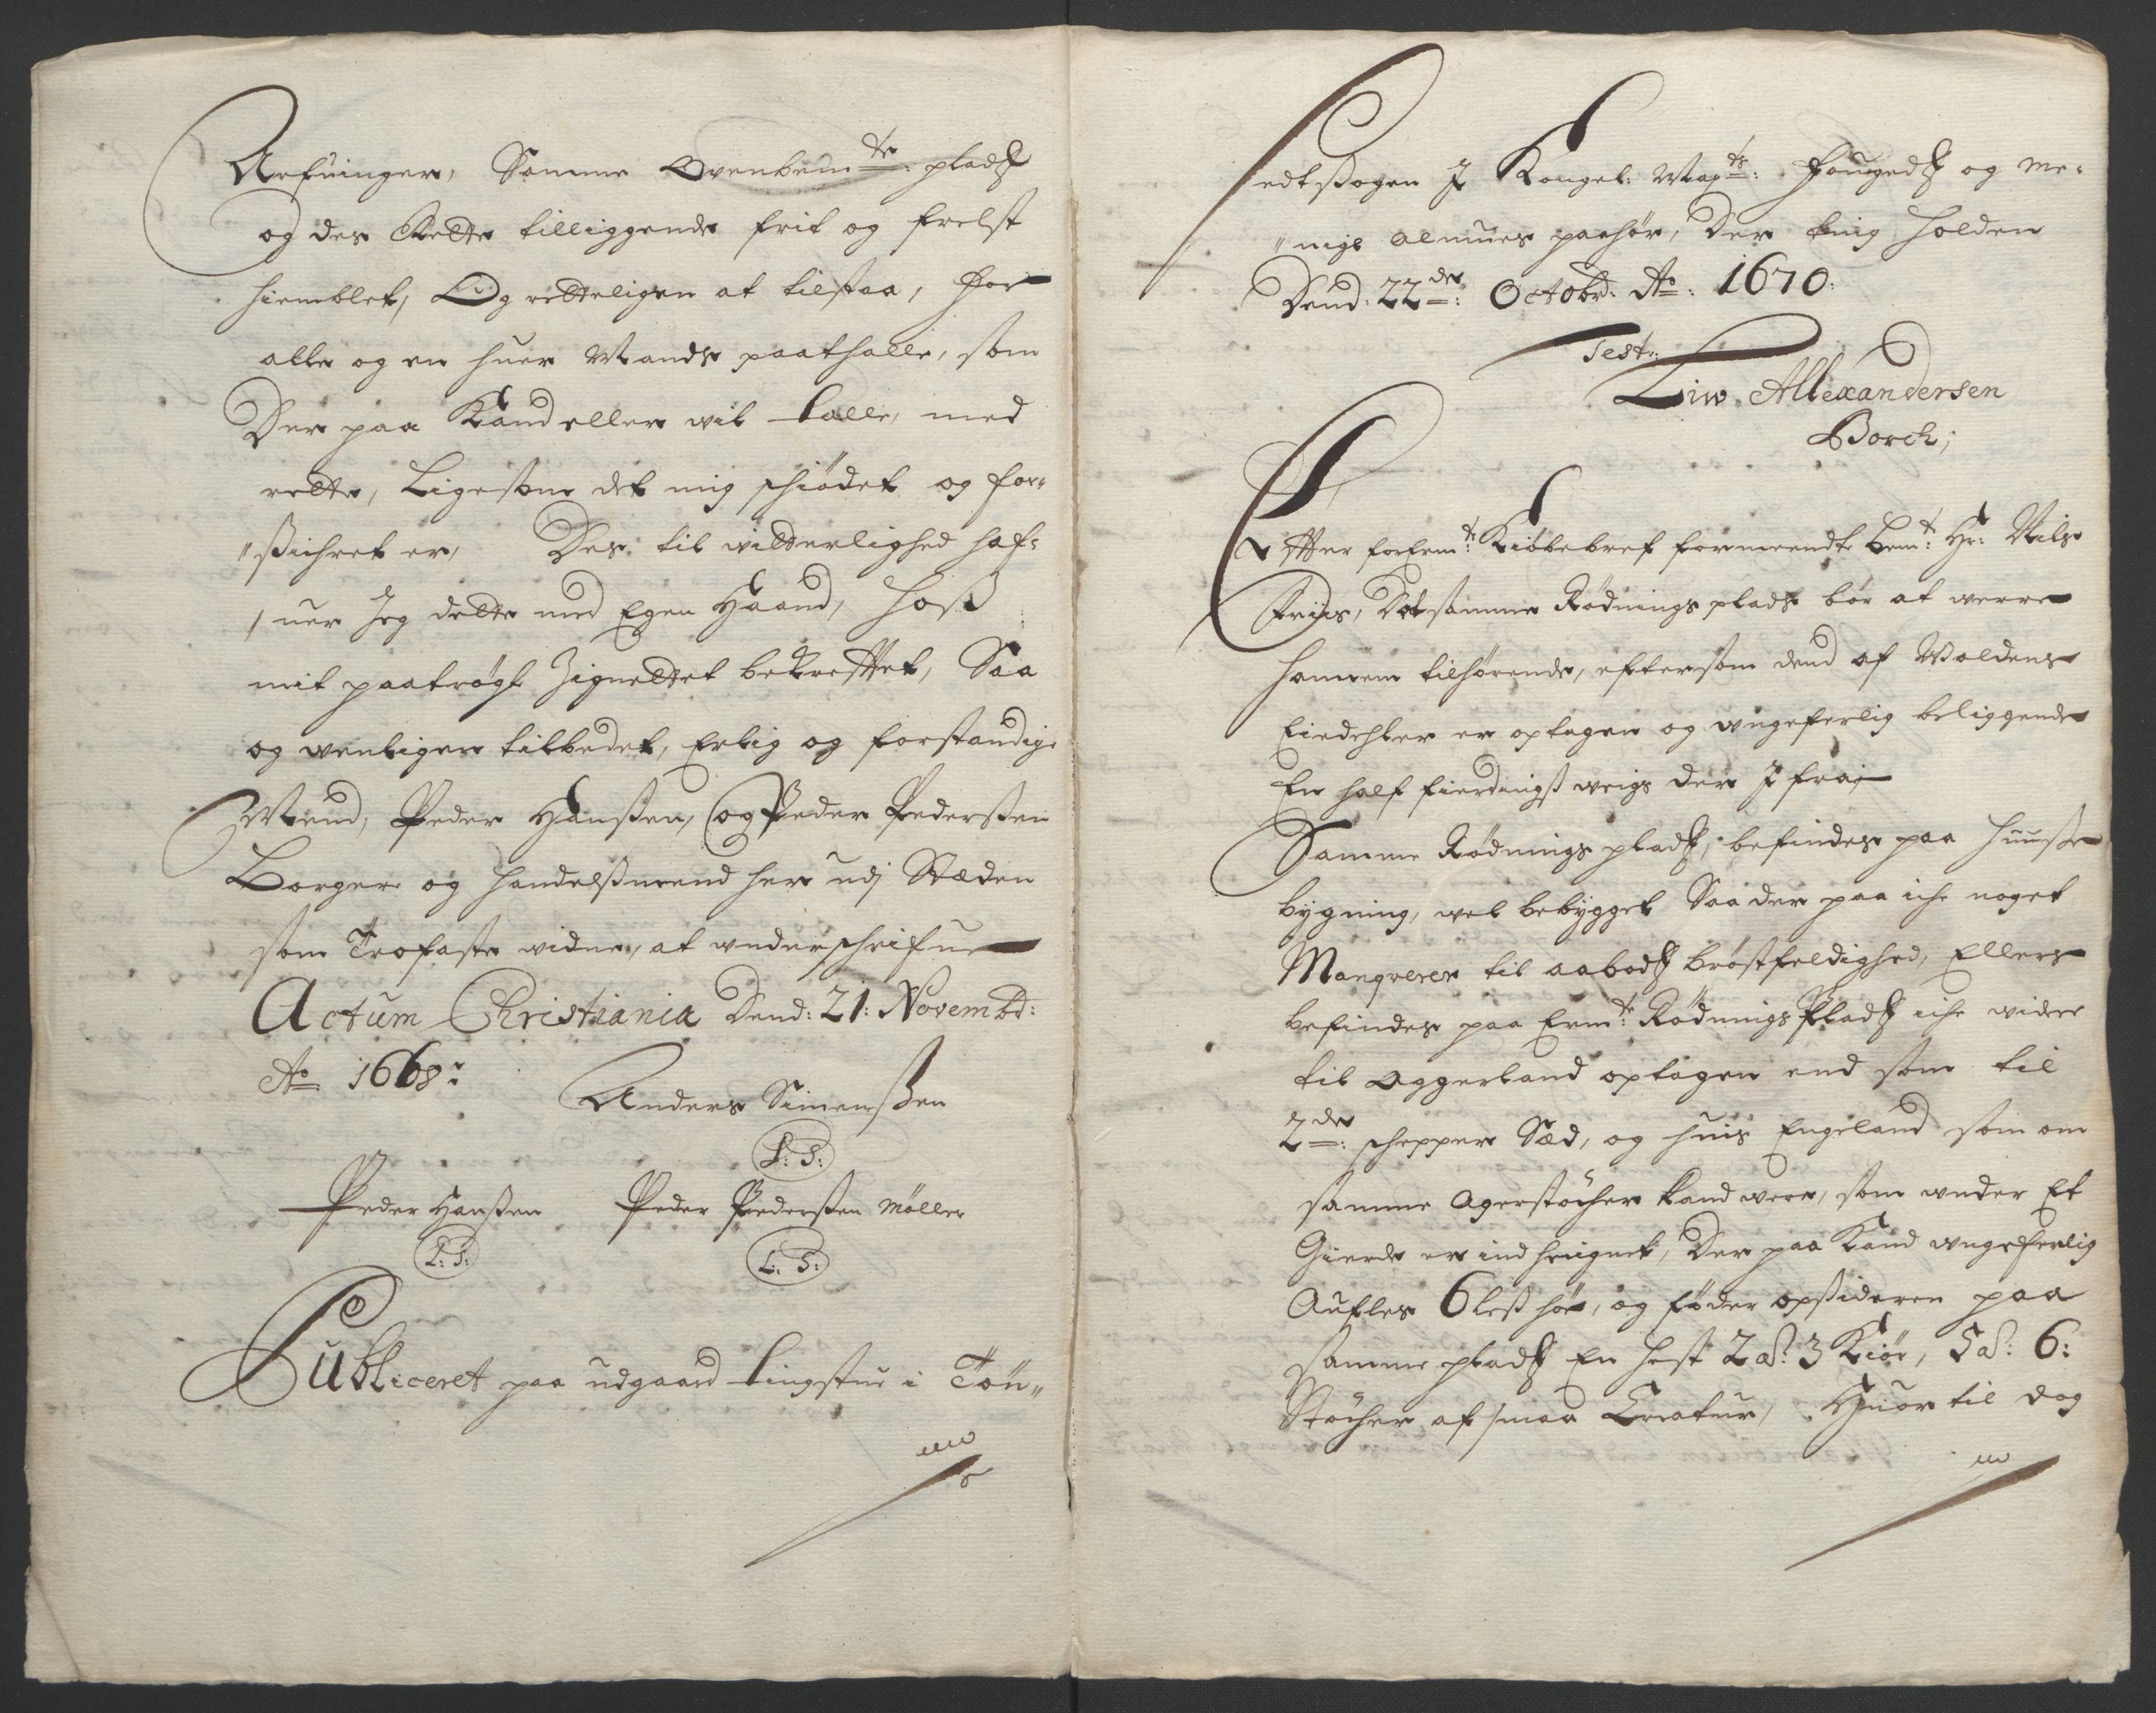 Arfuinger, Samme Ovenbem.te pladtz
og des Rette tilliggende frit og frelst
hiemblet, Og retteligen at tilstaa, for
alle og en huer Mands paathalle, som
Der paa Kand eller vil talle, med
rette, Ligesom det mig schiødet og for„
„sichret er, Des til vitterlighed haf„
„uer Jeg dette med Egen Haand, hoß
mit paatrøgt Zignettet bekrefftet, Saa
og venligen tilbedet, Erlig og forstandige
Mend, Peder Hanßen, og Peder Pederßen
Borger og handelßmend her udj Steden
som Trofaste vidne, at underschrifue
Actum Christiania Dend: 21: Novembr:
Ao. 1668:
Anders Simenßen
L: S:
Peder Hanßen Peder Pederßen Møller
L: S: L: S:
Publiceret paa udgaard tingstue i Tøn„
sedtßogen J Kongel: May.ts: fougedtz og me„
„nige Almues paahør, Der ting holden
Dend: 22de: Octobr: Ao: 1670:
Test:
Liw. Allexandersen
Borch;
Effter forbem.te Kiøbebref formeendte bem.te Hr: Nils
Friis, Det samme Rødnings plads bør at verre
hannem tilhørende, eftersom dend af Woldens
Eiedehler er optagen og ungeferlig beliggende
En half fierdingß veigs der J fra
Samme Rødnings pladtz, befindes paa huuße
bygning, vel bebygget Saa der paa iche noget
Manqverer til aabodtz brøstfeldighed, Ellers
befindes paa Erm.te Rødnings Pladtz iche videre
til Aggerland optagen end som til
2de: schepper Sæd, og huis Engeland som om
samme Agerstøcher kand vere, som under Et
Gierde er ind heignet, Der paa Kand ungeferlig
Aufles 6 leß høe, og føder opsideren paa
samme pladtz En hest 2 a: 3 Kiør, 5 a: 6:
Støcher af smaa Creatur, Huor til dog